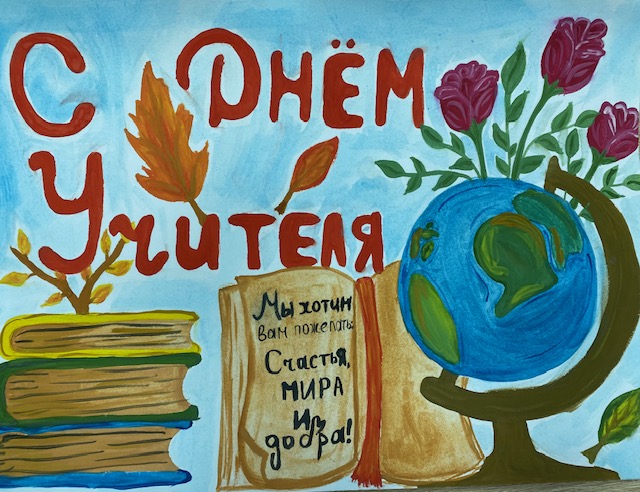 С Днём
Учителя
Мы хотим
вам пожелать:
Счастья,
МИРА
и
добра!